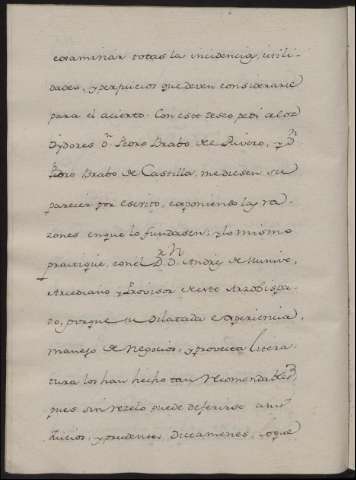 examinar todas la incidencia, utili-
dades, y perjuicios que deven considerarse
para el acierto. Con este deseo, pedi a los
Oydores Dn. Pedro Brabo de Rivero, y Dn.
Pedro Brabo de Castilla, me diesen su
parecer por escrito, exponiendo las ra-
zones en que lo fundasen; y lo mismo
practiqué, con el Dr. Dn. Andres de Munive,
Arcediano y Provisor de este Arzobispa-
do, porque su dilatada experiencia,
manejo de Negocios, y provecta Litera-
tura los han hecho tan recomendables,
pues sin rezelo puede deferirse a sus
juicios, y prudentes Dictamenes, lo que